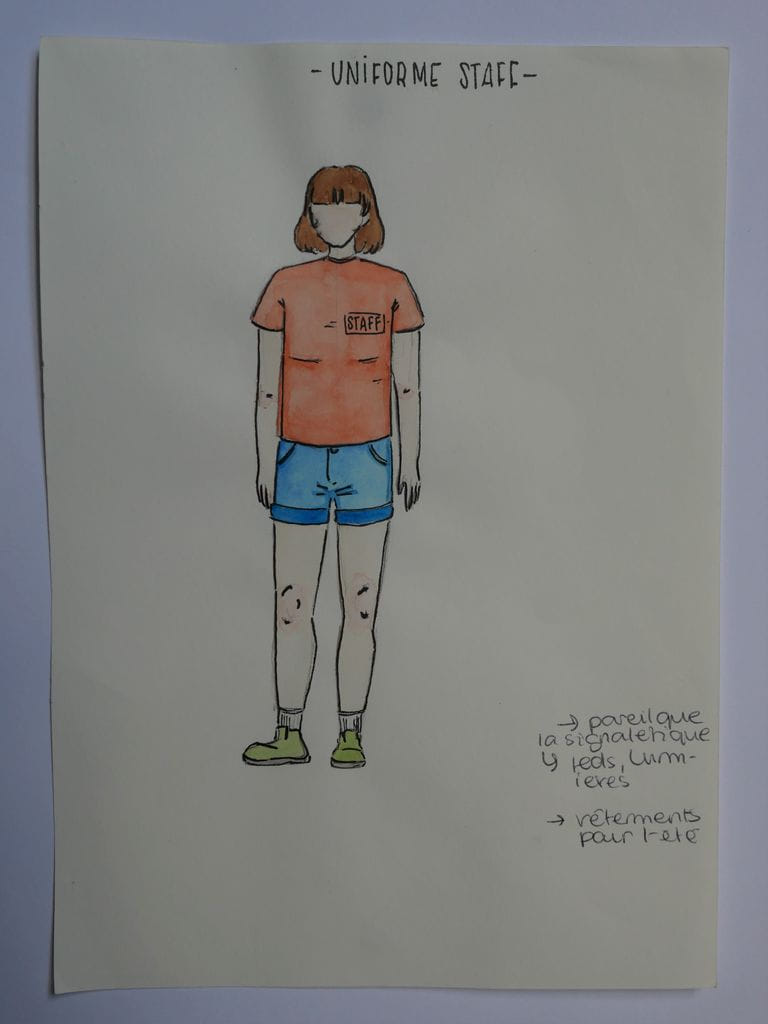 - UNIFORME STAFF -
STAFF
→ pareil que
la signaletique
↳ leds, lum-
ieres
→ vêtements
pour l'été